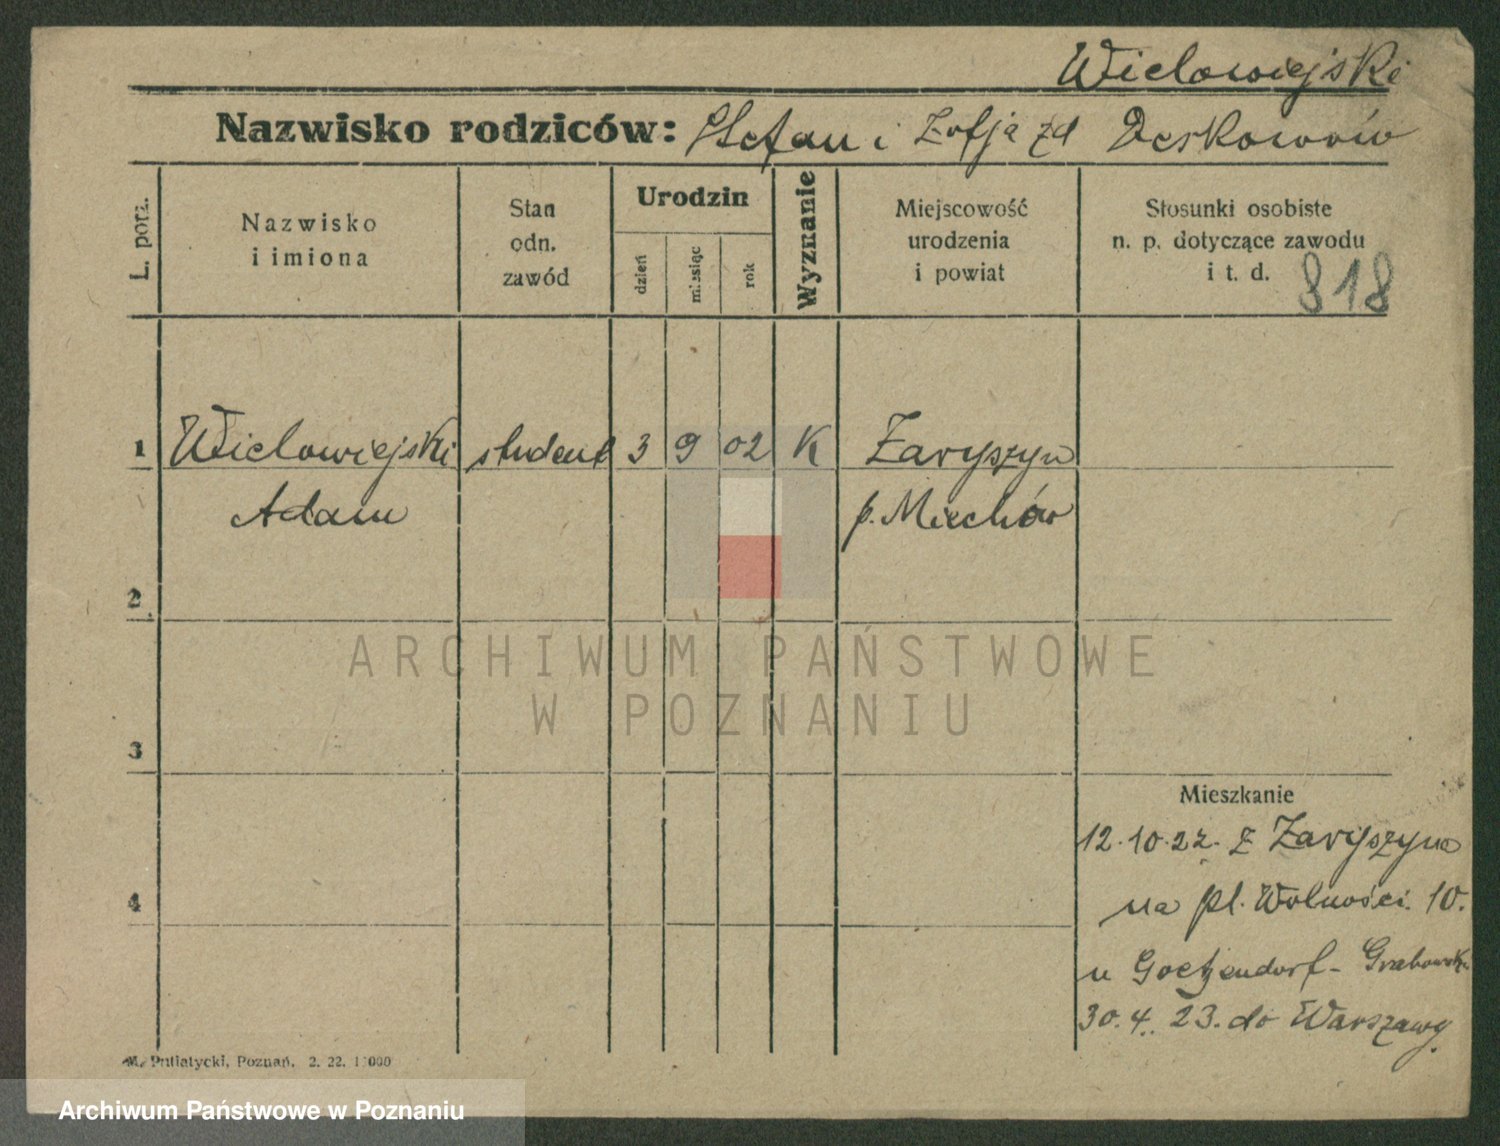 Wielowiejski
Nazwisko rodziców: Stefan i Zofja zd Deskowrów
L. porz.
Nazwisko
i imiona
Stan
odn.
zawód
Urodzin
dzień
miesiąc
rok
Wyznanie
Miejscowość
urodzenia
i powiat
Stosunki osobiste
n. p. dotyczące zawodu
i t. d. 818
1 Wielowiejski student 3 9 02 K Zaryszyn
Adam p. Miechów
2
3
Mieszkanie
12.10.22. z Zaryszyna
4
na pl. Wolności. 10.
u Goetzendorf-Grabowski
30.4.23. do Warszawy.
M. Putiatycki, Poznań. 2. 22. 11000
ARCHIWUM PAŃSTWOWE
W POZNANIU
Archiwum Państwowe w Poznaniu